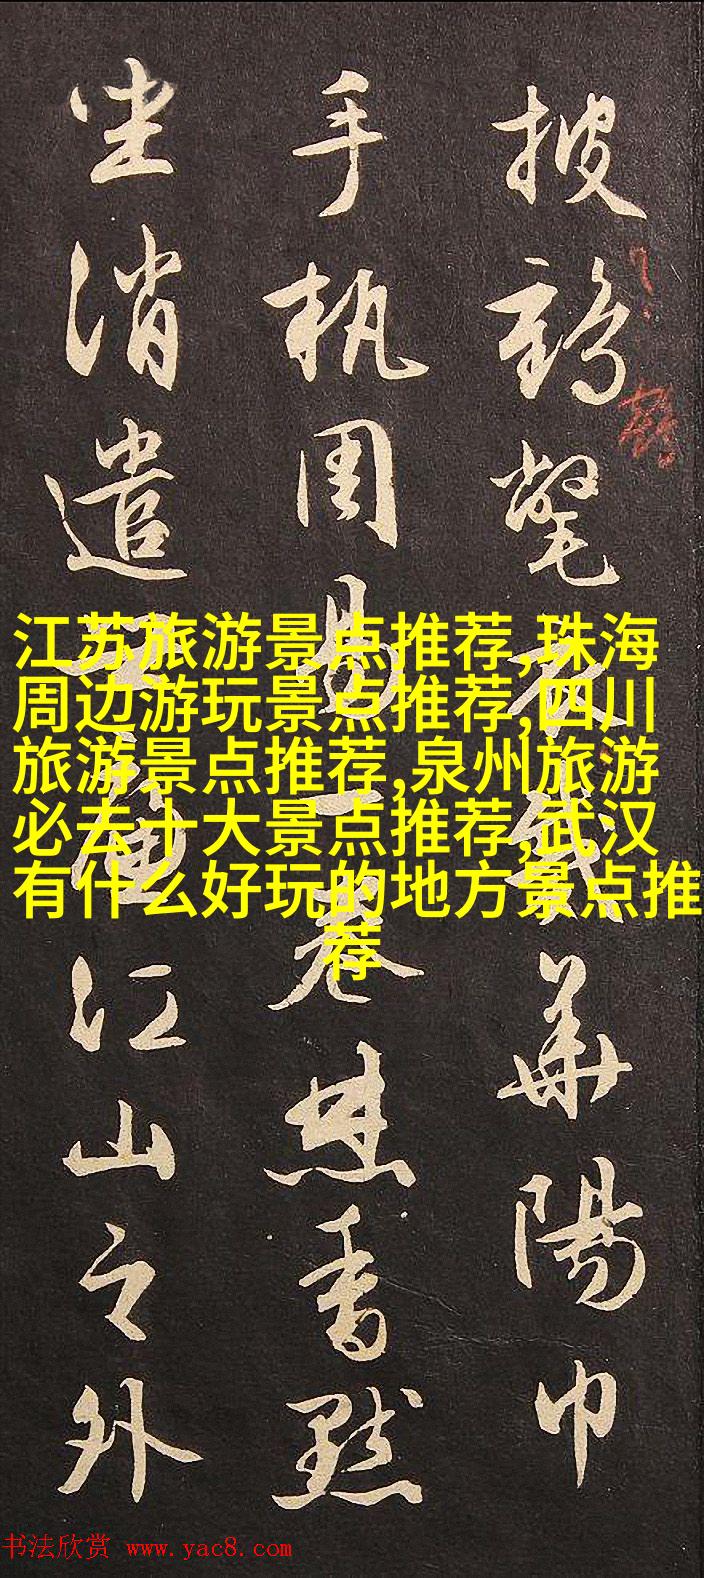 披鶴氅衣戴華陽巾
手執周易一卷焚香默
坐消遣世慮江山之外
江苏旅游景点推荐,珠海
周边游玩景点推荐,四川
旅游景点推荐,泉州旅游
必去十大景点推荐,武汉
有什么好玩的地方景点推
荐
书法欣赏 www.yac8.com